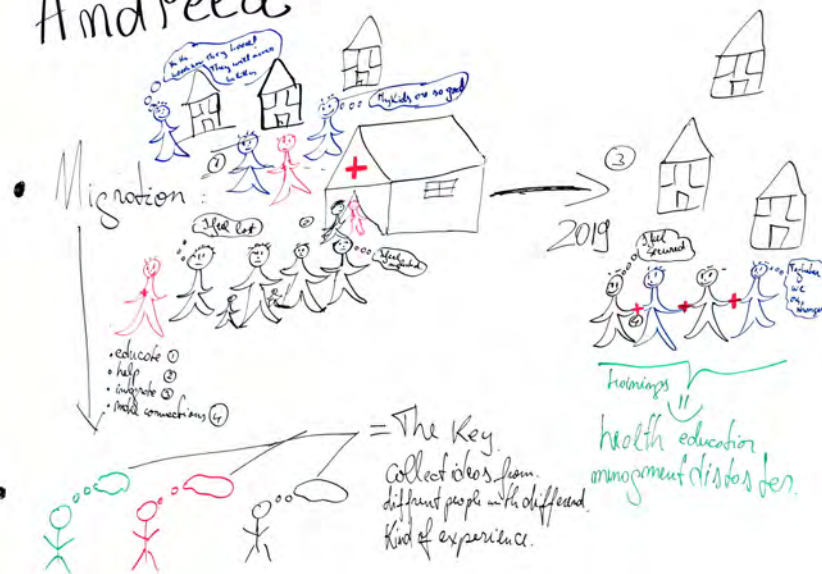 Andreea
They will never
My kids are so good
①
Migration :
I feel lost
②
I feel neglected
③
2019
I feel
secured
④
Together
we
are
stronger
• educate ①
• help ②
• integrate ③
• make connections ④
trainings
health education
mangment distaster.
= The Key.
collect ideos from
diffrent people with different
Kind of experience.